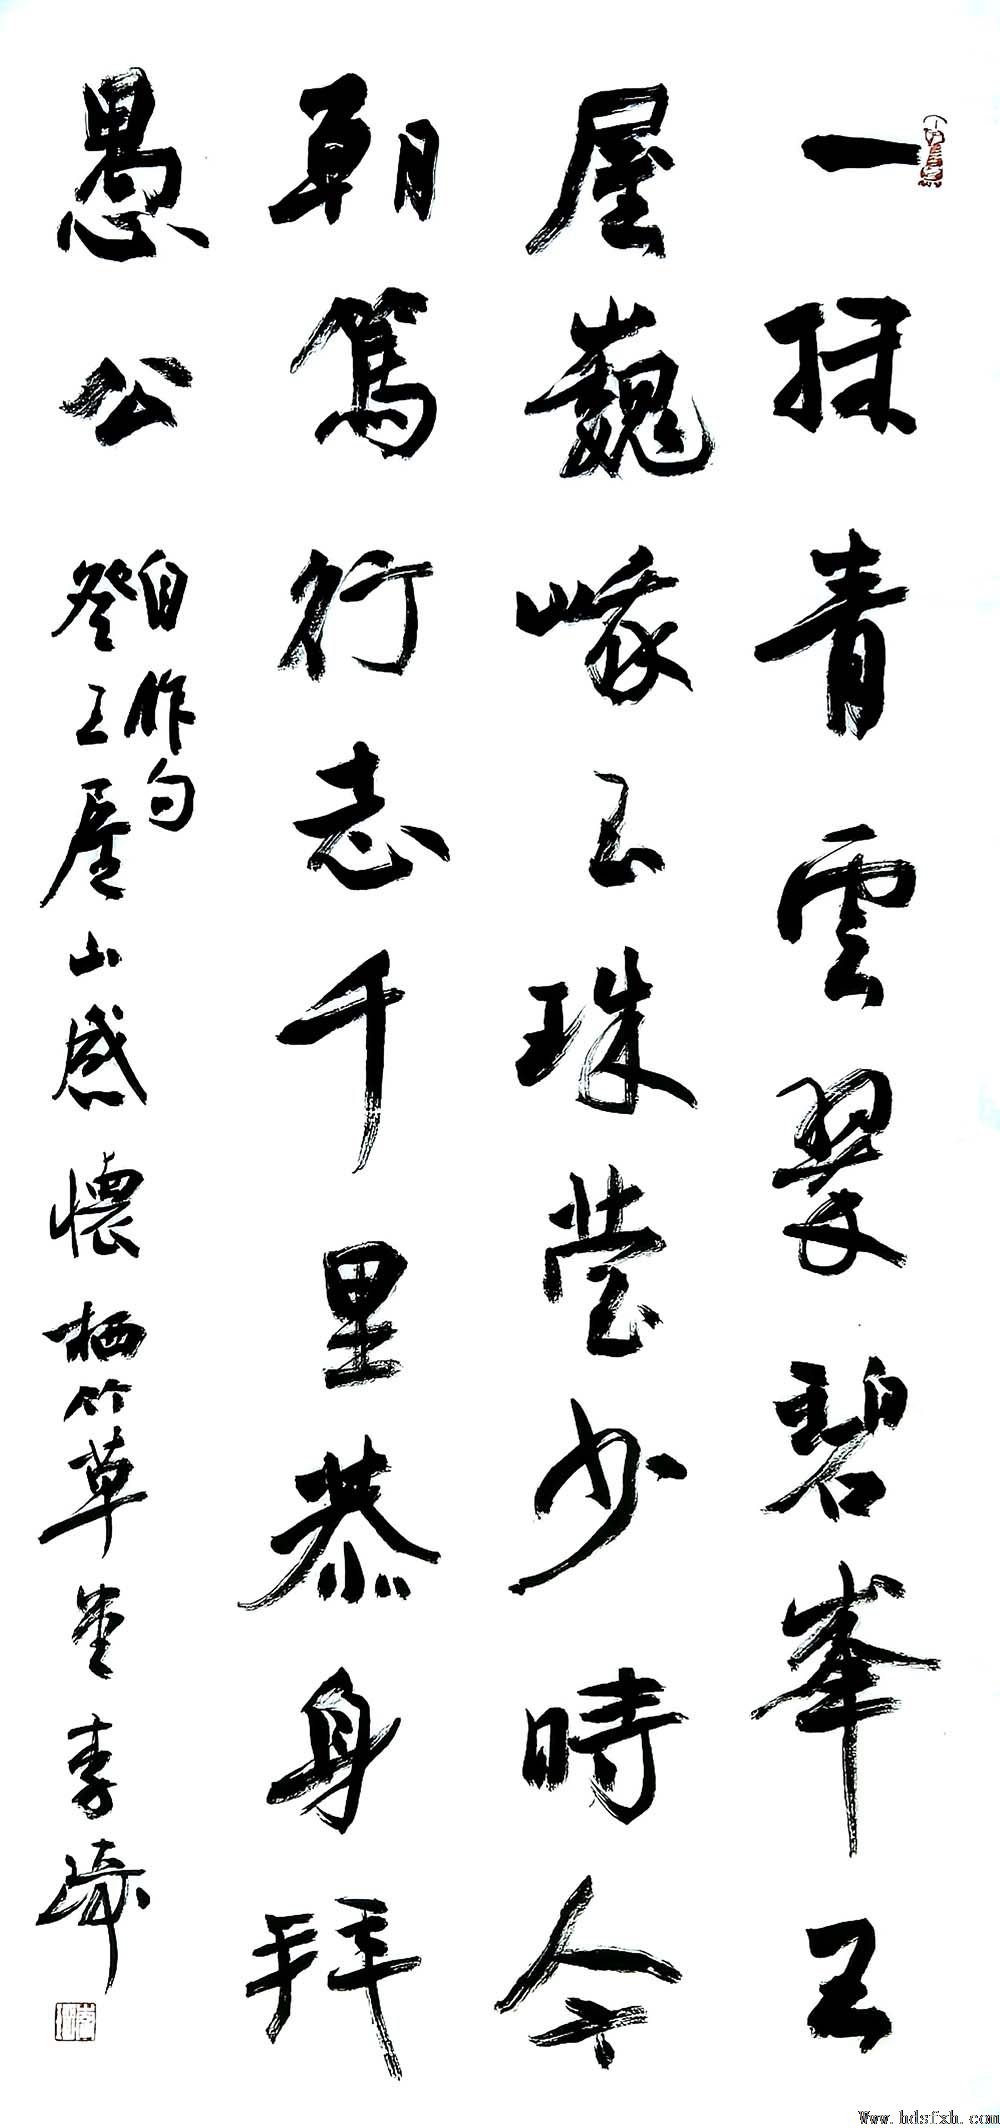 一抹青雲翠碧峯王
屋巍峨玉珠莹少時今
朝篤行志千里恭身拜
愚公
自作句
登王屋山感懷栖竹草堂李
Www.hdsfxh.com